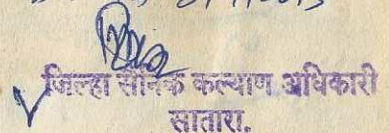 जिल्हा सैनिक कल्याण अधिकारी
सातारा.